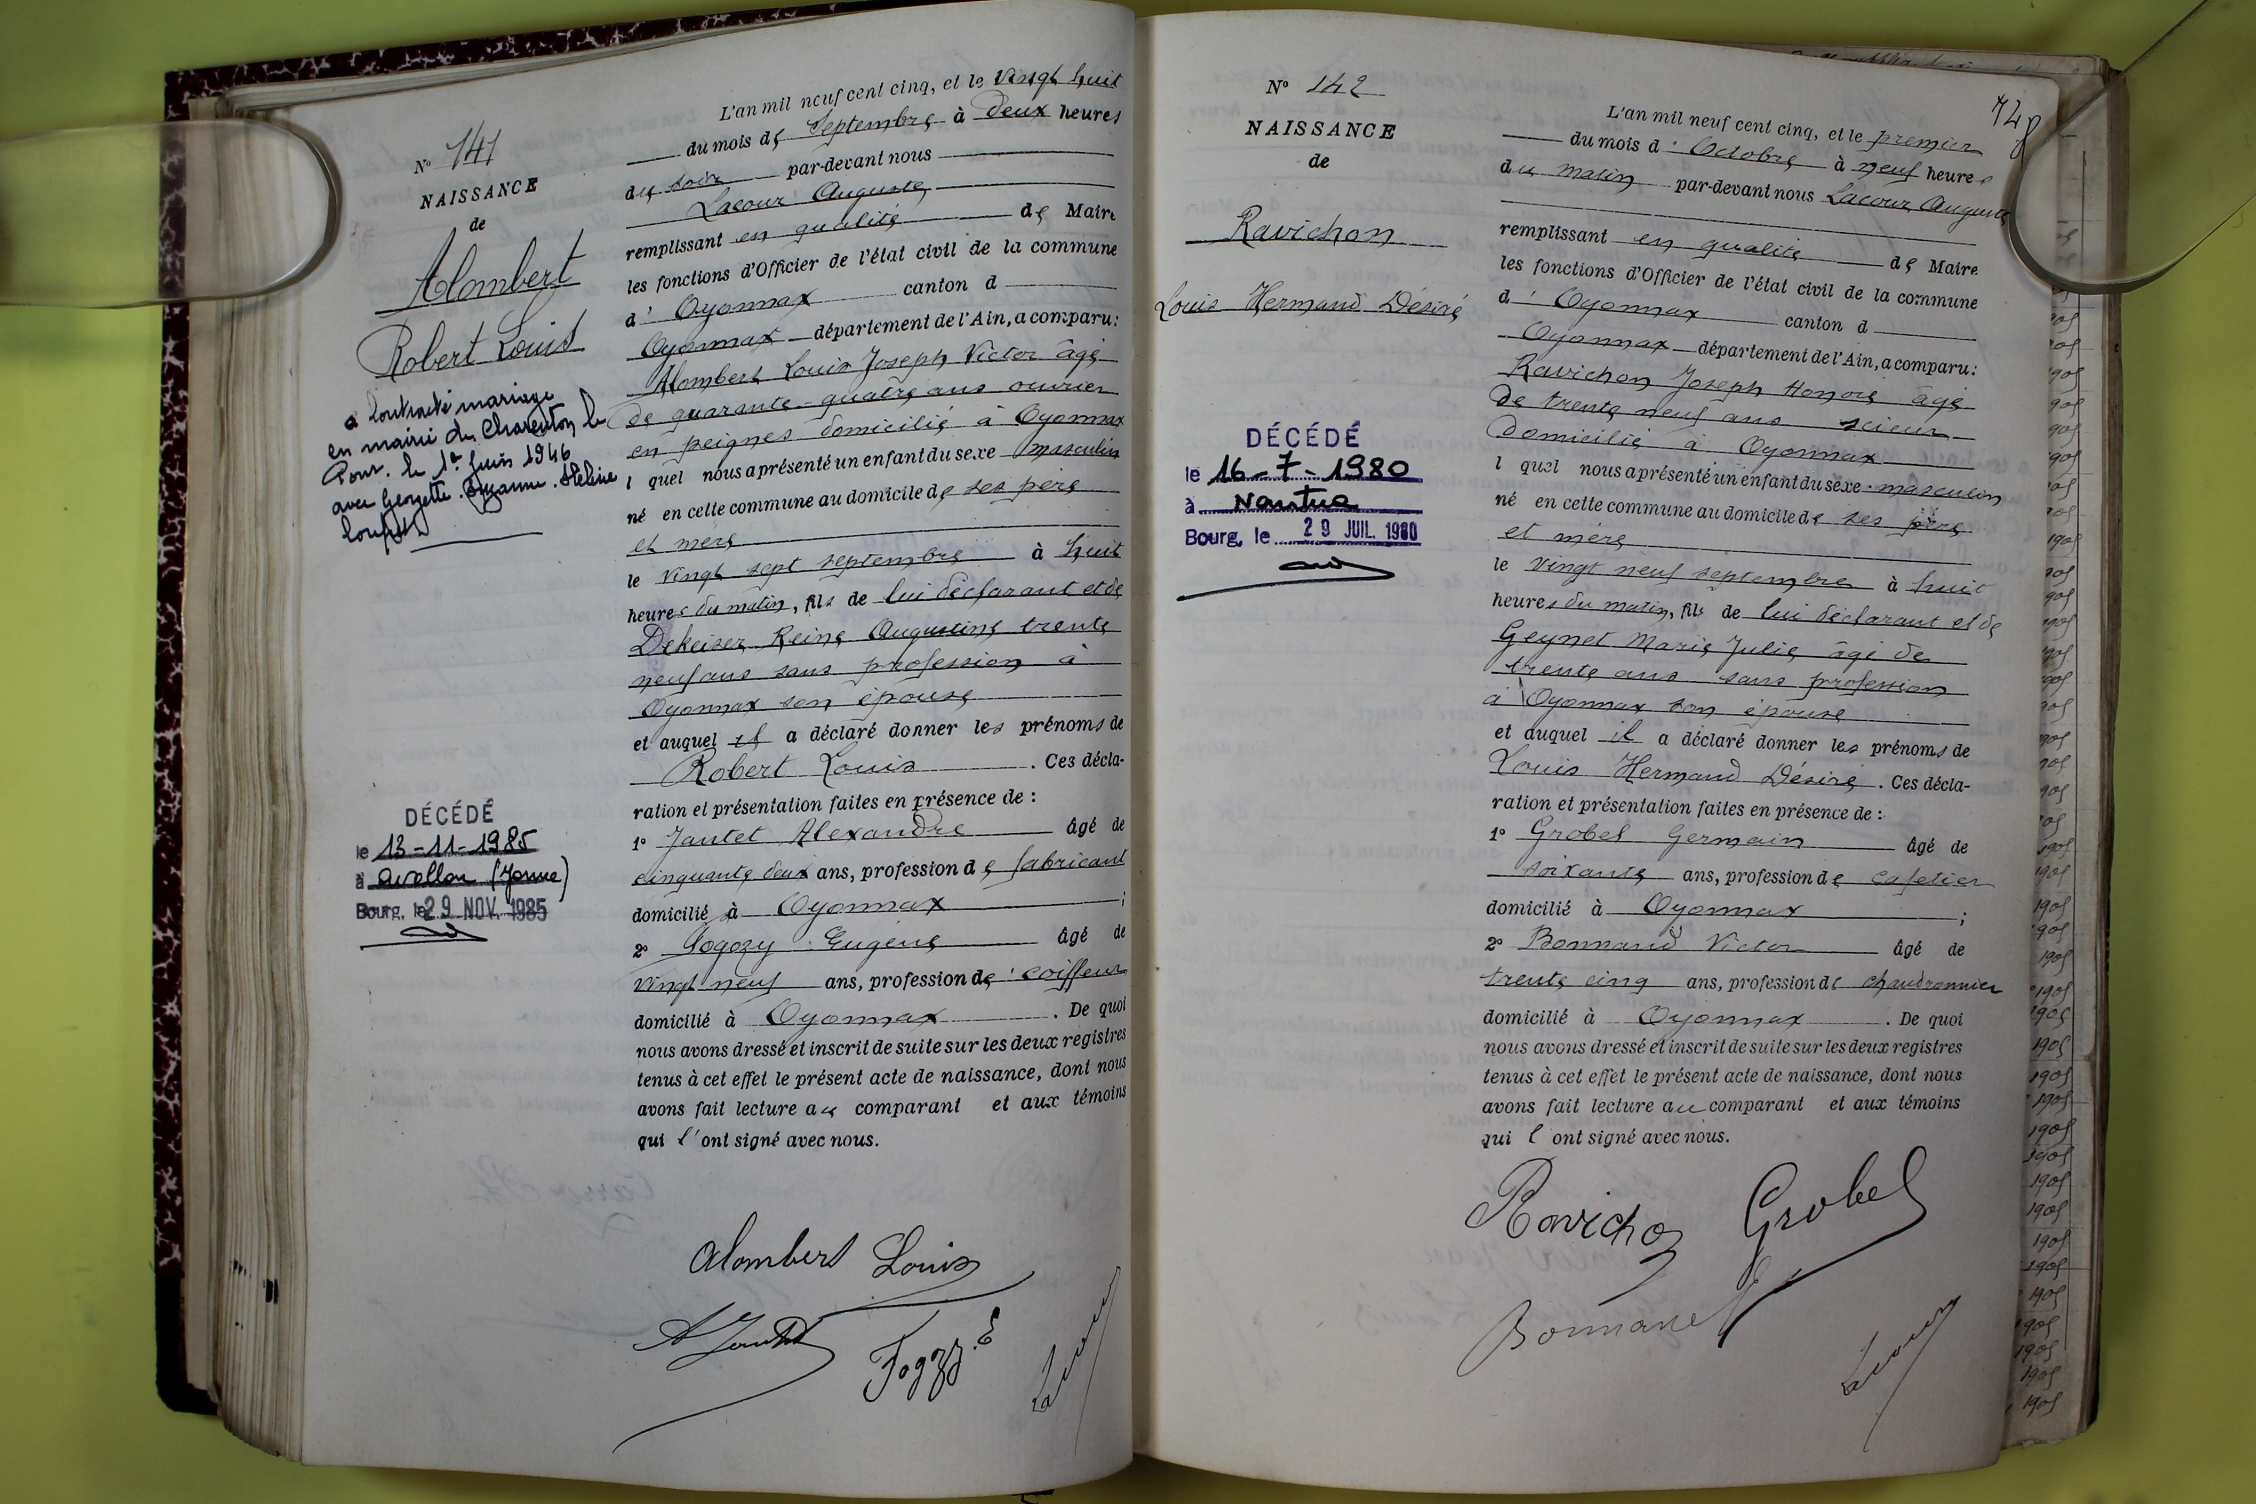 N° 141
NAISSANCE
de
Alombert
Robert Louis
a contracté mariage
en mairie de Charenton le
Pont. le 1er Juin 1946
avec Georgette. Suzanne. Hélène
DÉCÉDÉ
le 13-11-1985
à Avallon (Yonne)
Bourg, le 29 NOV. 1985
L'an mil neuf cent cinq, et le vingt huit
du mois de Septembre à deux heures
du soir par-devant nous
Lacour Auguste
remplissant en qualité de Maire
les fonctions d'Officier de l'état civil de la commune
d' Oyonnax canton d
Oyonnax département de l'Ain, a comparu:
Alombert Louis Joseph Victor âgé
de quarante-quatre ans ouvrier
en peignes domicilié à Oyonnax
l quel nous a présenté un enfant du sexe masculin
né en cette commune au domicile de ses père
et mère
le vingt sept septembre à huit
heures du matin, fils de lui déclarant et de
Dekeiser Reine Augustine trente
neuf ans sans profession à
Oyonnax son épouse
et auquel il a déclaré donner les prénoms de
Robert Louis . Ces décla-
ration et présentation faites en présence de :
1° Jantet Alexandre âgé de
cinquante deux ans, profession de fabricant
domicilié à Oyonnax ;
2° Eugène âgé de
vingt neuf ans, profession de coiffeur
domicilié à Oyonnax . De quoi
nous avons dressé et inscrit de suite sur les deux registres
tenus à cet effet le présent acte de naissance, dont nous
avons fait lecture au comparant et aux témoins
qui l'ont signé avec nous.
Alombert Louis
A Jantet
Lacour
N° 142
NAISSANCE
de
Ravichon
Louis Hermand Désiré
DÉCÉDÉ
le 16-7-1980
à Nantua
Bourg, le 29 JUIL. 1980
L'an mil neuf cent cinq, et le premier
du mois d'Octobre à neuf heures
du matin par-devant nous Lacour Auguste
remplissant en qualité de Maire
les fonctions d'Officier de l'état civil de la commune
d' Oyonnax canton d
Oyonnax département de l'Ain, a comparu:
Ravichon Joseph Honoré âgé
de trente neuf ans scieur
domicilié à Oyonnax
l quel nous a présenté un enfant du sexe masculin
né en cette commune au domicile de ses père
et mère
le vingt neuf septembre à huit
heures du matin, fils de lui déclarant et de
Geynet Marie Julie âgé de
trente ans sans profession
à Oyonnax son épouse
et auquel il a déclaré donner les prénoms de
Louis Hermand Désiré . Ces décla-
ration et présentation faites en présence de :
1° Grobel Germain âgé de
soixante ans, profession de cafetier
domicilié à Oyonnax ;
2° Bonnand Victor âgé de
trente cinq ans, profession de chaudronnier
domicilié à Oyonnax . De quoi
nous avons dressé et inscrit de suite sur les deux registres
tenus à cet effet le présent acte de naissance, dont nous
avons fait lecture au comparant et aux témoins
qui l ont signé avec nous.
Ravichon Grobel
Bonnand
Lacour